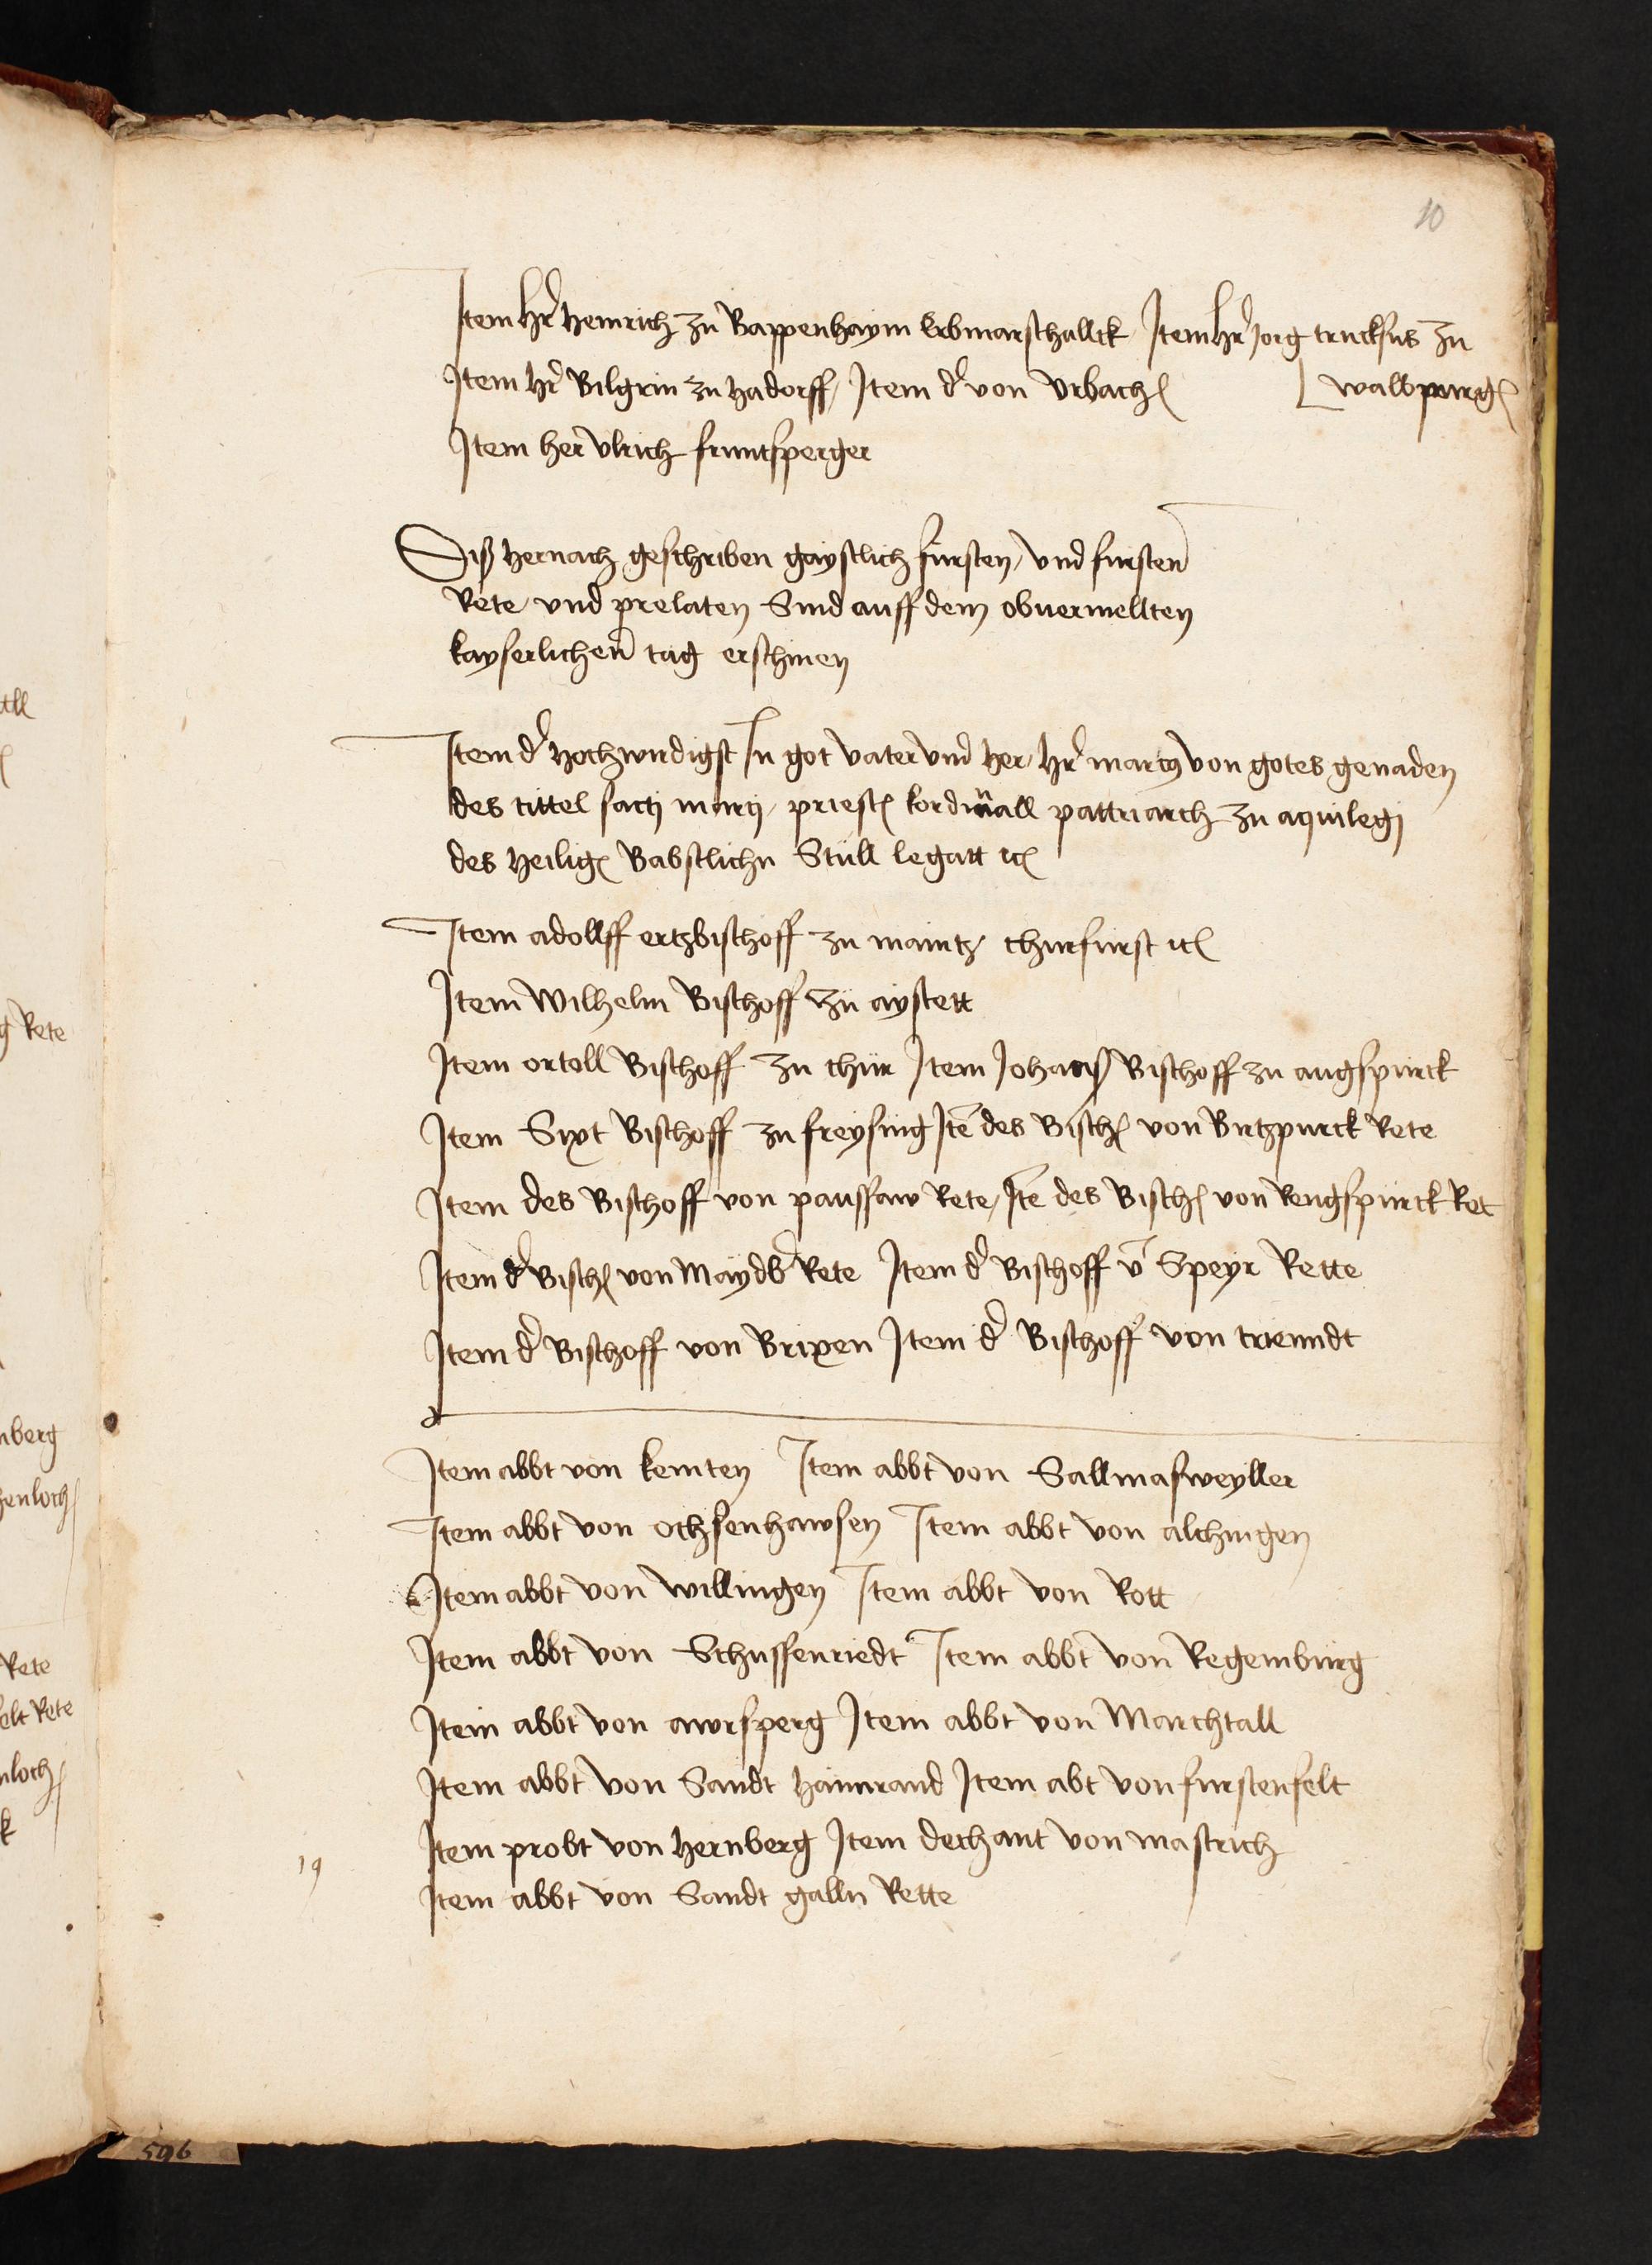 10
Item hr̄ Heinrich zu Bappenhaym Erbmarschallck Item hr̄ Jorg trucksus zu
Item hr̄ Bilgrin zu Hadorff / Item d' von Vrbach
wallpurg
Item her Vlrich fruntsperger
Diß hernach geschriben gaystlich fursten / vnd fursten
Rete vnd prelaten Sind auff dem obuermellten
kayserlichen tag erschinen
Item d' Hochwirdigst In got vater vnd her / hr̄ marcy von gotes genaden
des tittel sacti marci / priest kordinall pattriarch zu aquilegi
des heilig Babstlichn Stull legatt ꝛc
Item adollff ertzbischoff zu maintz churfurst ꝛc
Item Wilhelm Bischoff zu aystett
Item ortoll Bischoff zu chur Item Johans Bischoff zu augspurck
Item Sixt Bischoff zu freysing Itē des Bisch von Birtzpurck Rete
Item des Bischoff von paussaw Rete / Itē des Bisch von Rengspurck Ret
Item d' Bisch von Maydb' Rete Item d' Bischoff v̄ Speyr Rette
Item d' Bischoff von Brixen Item d' Bischoff von trienndt
Item abbt von kemten Item abbt von Sallmasweyller
Item abbt von ochsenhawsen Item abbt von alchingen
Item abbt von willingen Item abbt von Rott
Item abbt von Schussenriedt Item abbt von Regemburg
Item abbt von awrsperg Item abbt von Marchtall
Item abbt von Sandt haimrand Item abt von furstenfelt
Item probt von hernberg Item dechant von mastrich
19
Item abbt von Sandt galln Rette
tll
g Rete
nberg
henloch
Rete
elt Rete
nloch
k
596